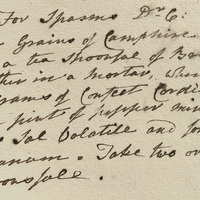 For Spasms Dr C:
Grains of Camphire
a tea Spoonful of Br
ther in a mortar,
grams of Confect Cordi
pint of pepper min
Sal Volatile and for
anum. Take two or
oonsfuls.